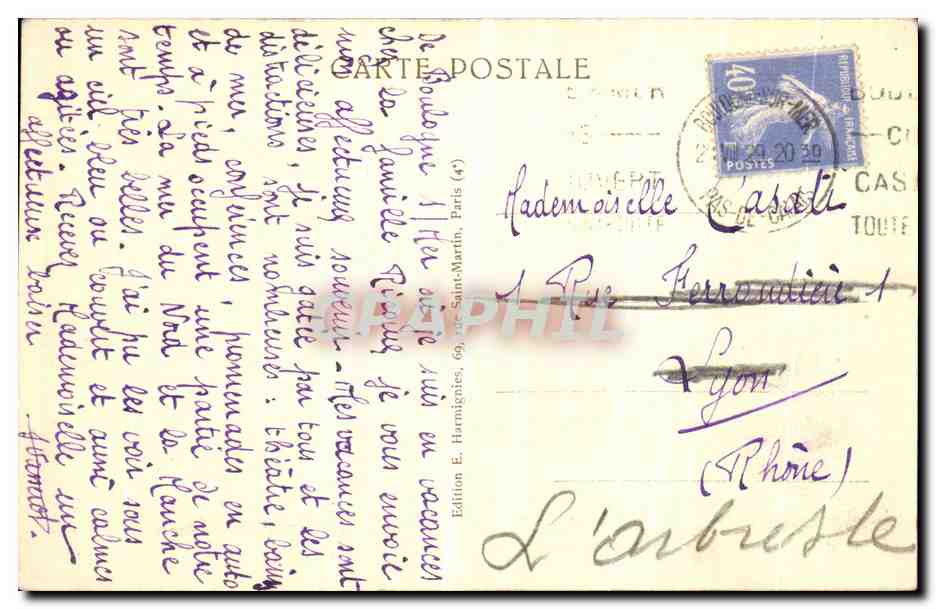 CARTE POSTALE
De Boulogne s/Mer où je suis en vacances
chez la famille je vous envoie
mon affectueux souvenir. Mes vacances sont
délicieuses, je suis gâtée par tous et les
distractions sont nombreuses : théâtre, bains
de mer, conférences, promenades en auto
et à pieds occupent une partie de notre
temps. La mer du Nord et la Manche
sont très belles. J'ai pu les voir sous
un ciel bleu ou couvert et aussi calmes
ou agitées. Recevez Mademoiselle un
affectueux baiser
Edition E. Harmignies, 69, rue Saint-Martin, Paris (4e)
CPAPHIL
REPUBLIQUE FRANÇAISE
40c
POSTES
BOULOGNE-SUR-MER
VII 29 20 30
PAS-DE-CALAIS
CAS
TOUTE
Mademoiselle Casati
1 Rue Ferrandière 1
Lyon
(Rhône)
L'arbresle